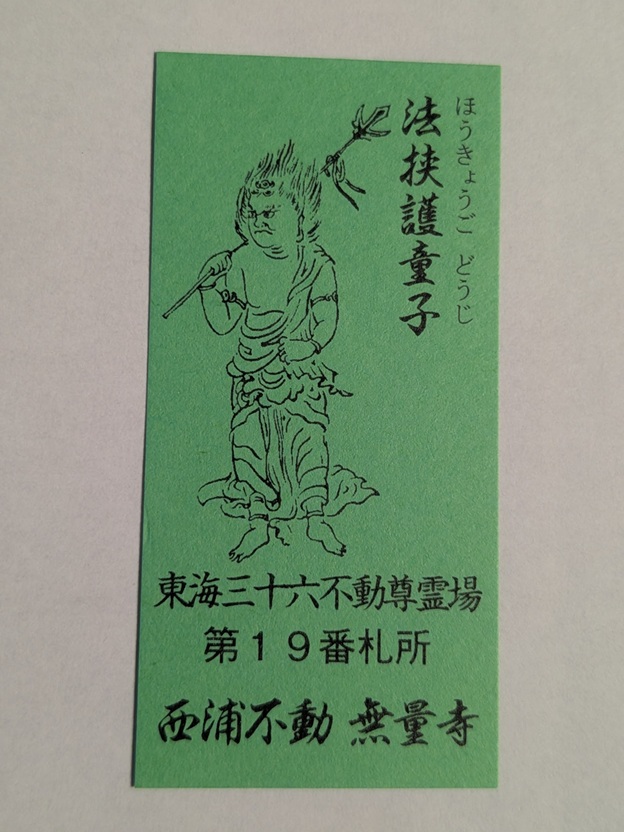 法挟護童子
ほうきょうご どうじ
東海三十六不動尊霊場
第19番札所
西浦不動 無量寺